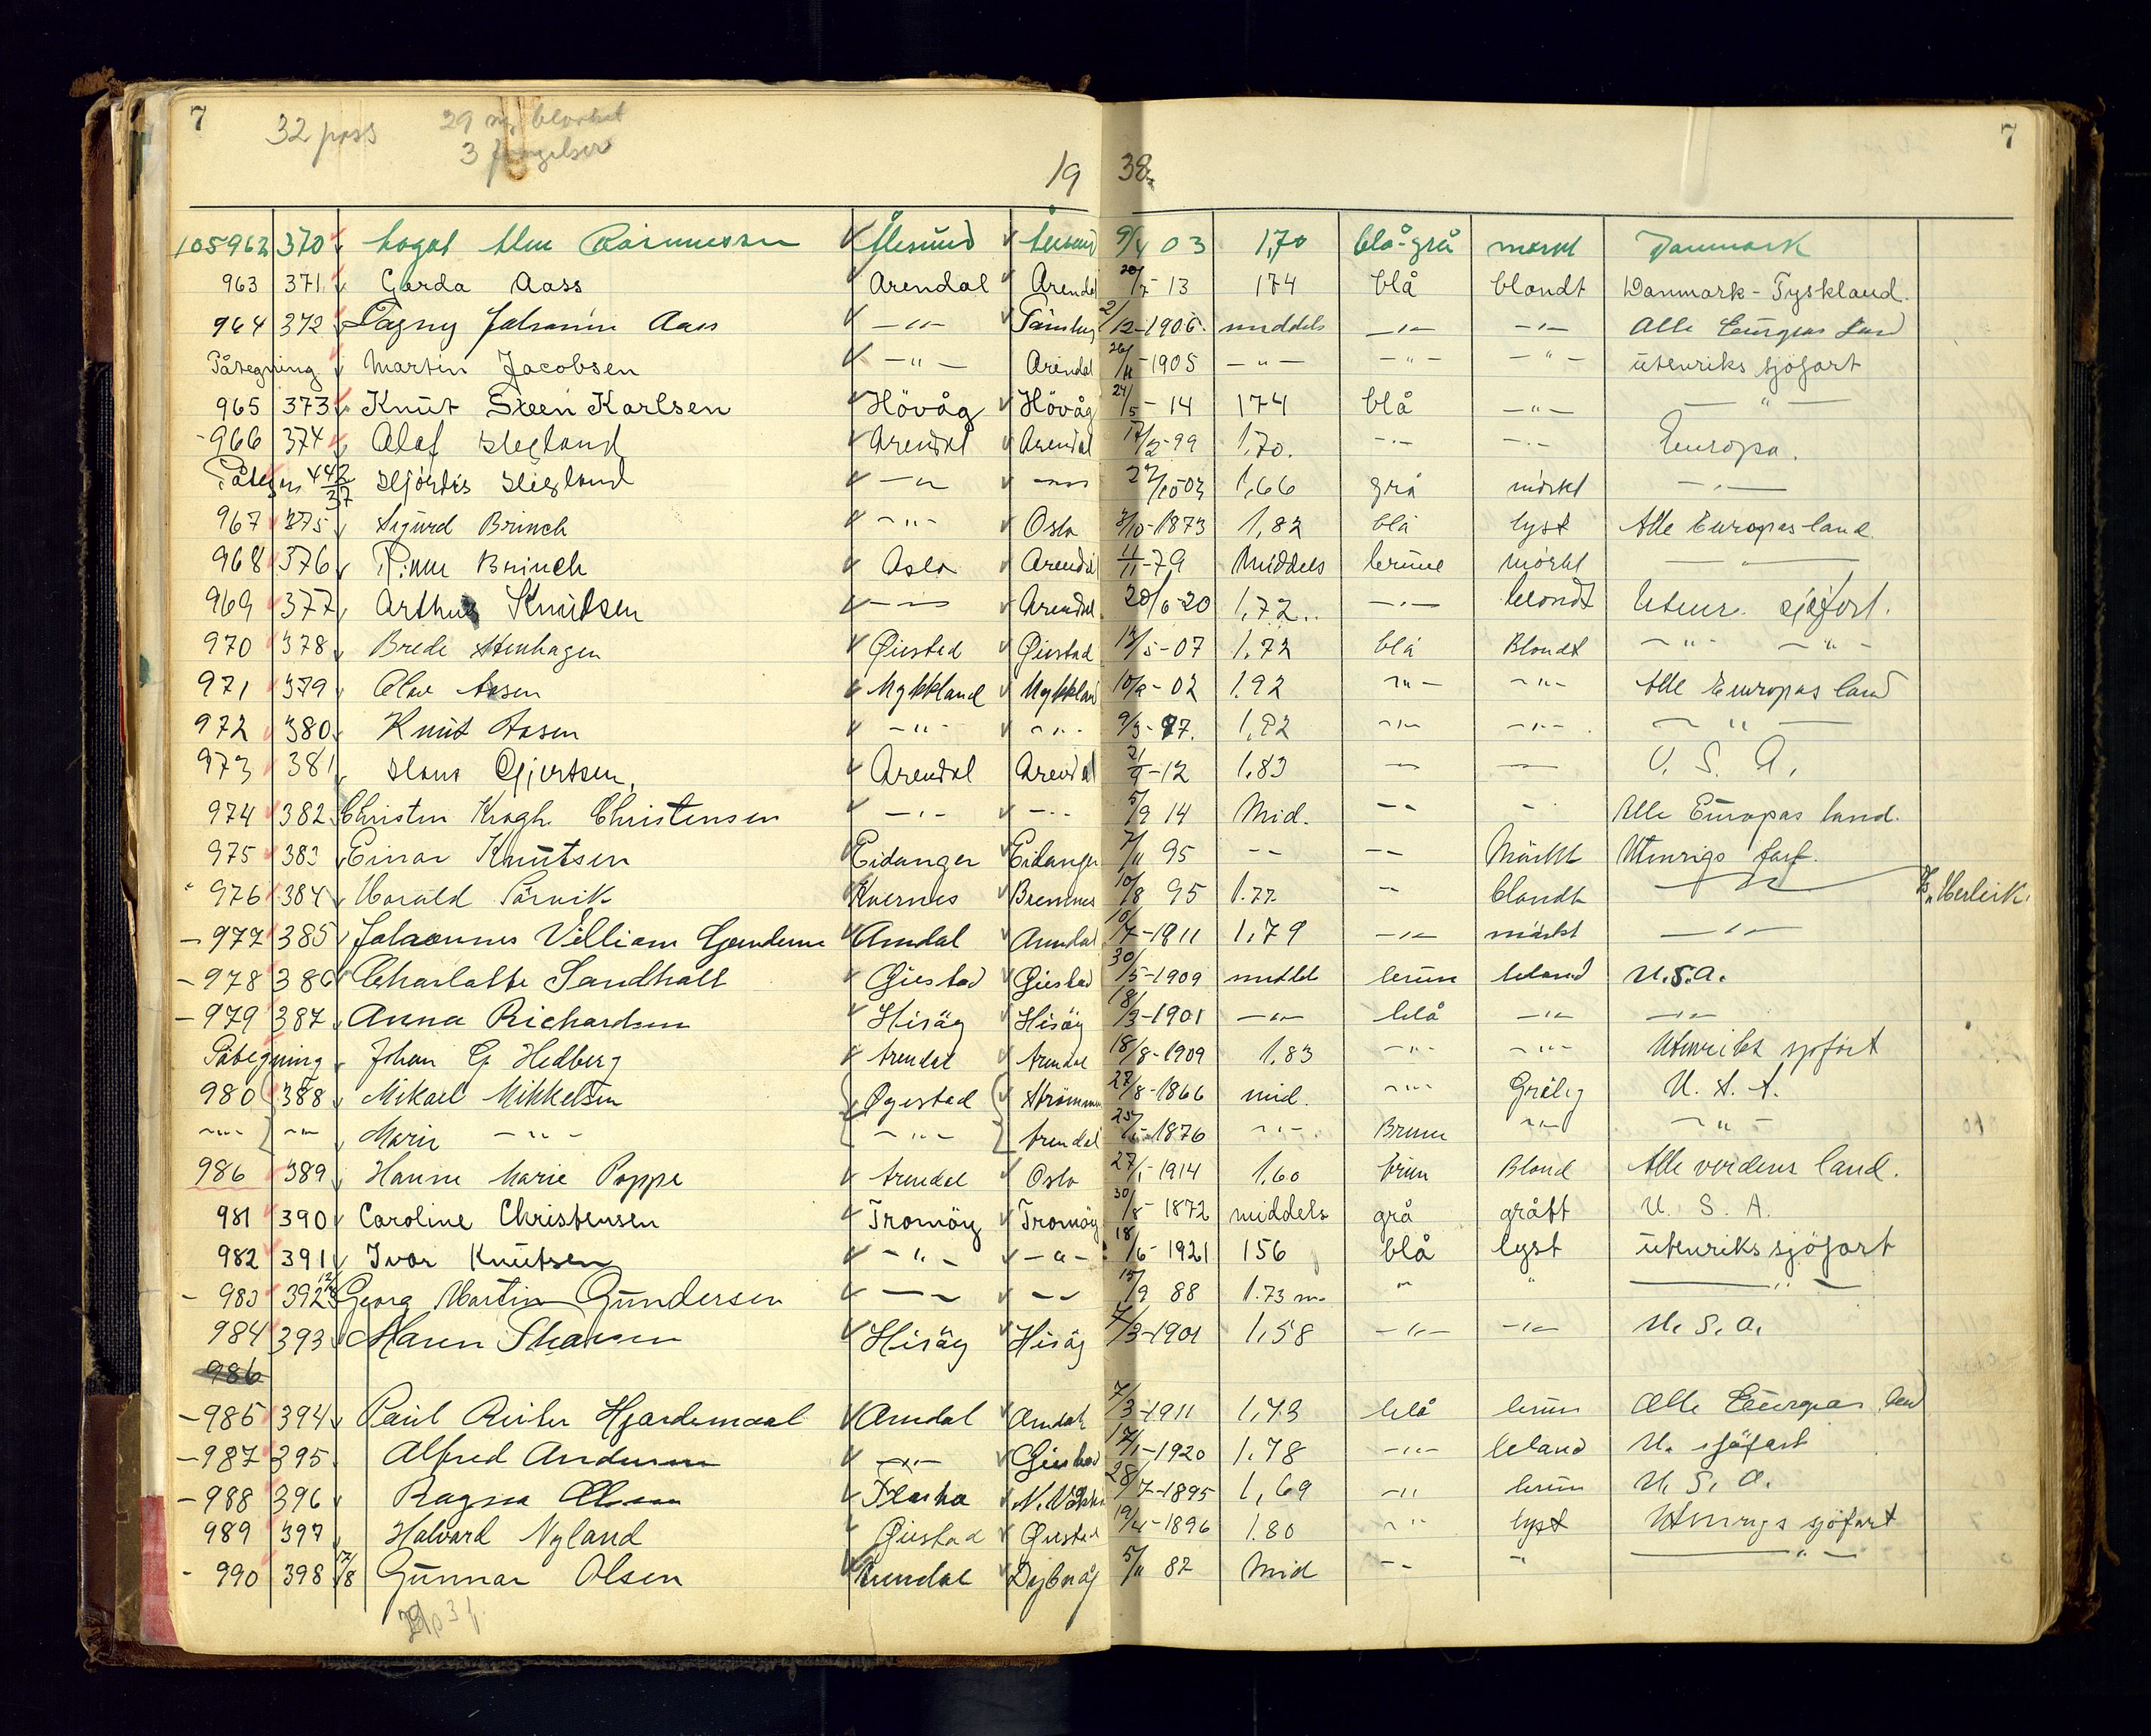 7 7
32 pass 29 m, blankt
3
19 38
105962 370 Aasmussen Ålesund 9/4 03 1,70 blå-grå mørkt Danmark
963 371 Gerda Aass Arendal Arendal 20/7 13 174 blå blondt Danmark - Tyskland.
964 372 Dagny Johanne Aass -"- 2/12-1906. middels -"- -"- Alle Europas land
Påtegning Martin Jacobsen -"- Arendal 26/11-1905 -"- -"- -"- utenriks sjöfart
965 373 Knut Steen Karlsen Hövåg Hövåg 24/5-14 174 blå -"- -"-
-966 374 Olaf Hegland Arendal Arendal 17/2-99 1,70. -"- -"- Europa.
Påtegn 442/37 Hjördis Hegland -"- -"- 22/10-03 1,66 grå mörkt -"-
967 375 Sigurd Brinch -"- Oslo 3/10-1873 1,82 blå lyst Alle Europas land.
968 376 Brinch Oslo Arendal 11/11-79 Middels brune mörkt -"-
969 377 Arthur Knutsen -"- Arendal 28/6-20 1,72.. -"- blondt Utenr. sjøfart.
970 378 Brede Stenhagen Øiestad Øiestad 13/5-07 1.72 blå Blondt -"- -"-
971 379 Olav Aasen Mykkland Mykkland 10/9-02 1.92 -"- -"- Alle Europas land
972 380 Knut Aasen -"- -"- 9/3-97. 1,82 -"- -"- -"-
973 381 Hans Gjertsen, Arendal Arendal 21/9-12 1.83 -"- -"- U. S. A.
974 382 Christen Krogh Christensen -"- -"- 5/9 14 Mid. -"- - Alle Europas land.
975 383 Einar Knutsen Eidanger Eidanger 7/11 95 -"- -"- Mörkt Utenrigs fart.
976 384 Harald Kvernes Bremnes 10/8 95 1.77. -"- blondt -"-
-977 385 Johannes Villiam Arendal Arendal 10/7-1911 1,79 -"- mörkt -"-
-978 386 Charlotte Sandhalt Øiestad Øiestad 30/5-1909 middel brun blond U.S.A.
-979 387 Anna Richardsen Hisöy Hisöy 18/3-1901 -"- blå -"- -"-
Påtegning Johan G Hedberg Arendal Arendal 18/8-1909 1,83 -"- -"- Utenriks sjøfart
980 388 Mikael Mikkelsen Øyestad Strömmen 27/8-1866 mid. -"- Grålig U. S. A.
-"- -"- Marie -"- -"- Arendal 25/5-1876 -"- Brune -"- -"-
986 389 Hanne Marie Poppe Arendal Oslo 27/1-1914 1,60 brun Blond Alle verdens land.
981 390 Caroline Christensen Tromöy Tromöy 30/8-1872 middels grå grått U. S. A.
982 391 Ivar Knutsen -"- -"- 18/6-1921 156 blå lyst utenriks sjöfart
- 983 392 Georg Martin Gundersen -"- -"- 15/9 88 1.73 m. " " -"-
984 393 Maren Hisöy Hisöy 7/3-1901 1,58 -"- -"- U. S. A.
986
-985 394 Paul Hjardemaal Arendal Arendal 7/3-1911 1,73 blå brun Alle Europas land
-987 395 Alfred Andersen -"- Øiestad 17/1-1920 1.78 -"- blond U. sjöfart
-988 396 Ragna Olsen 28/7-1895 1,69 -"- brun U. S. A.
989 397 Halvard Nyland Øiestad Øiestad 19/4-1896 1.80 -"- lyst Utenrigs sjöfart
- 990 398 17/8 Gunnar Olsen Arendal 5/11 82 Mid -"- -"- -"-